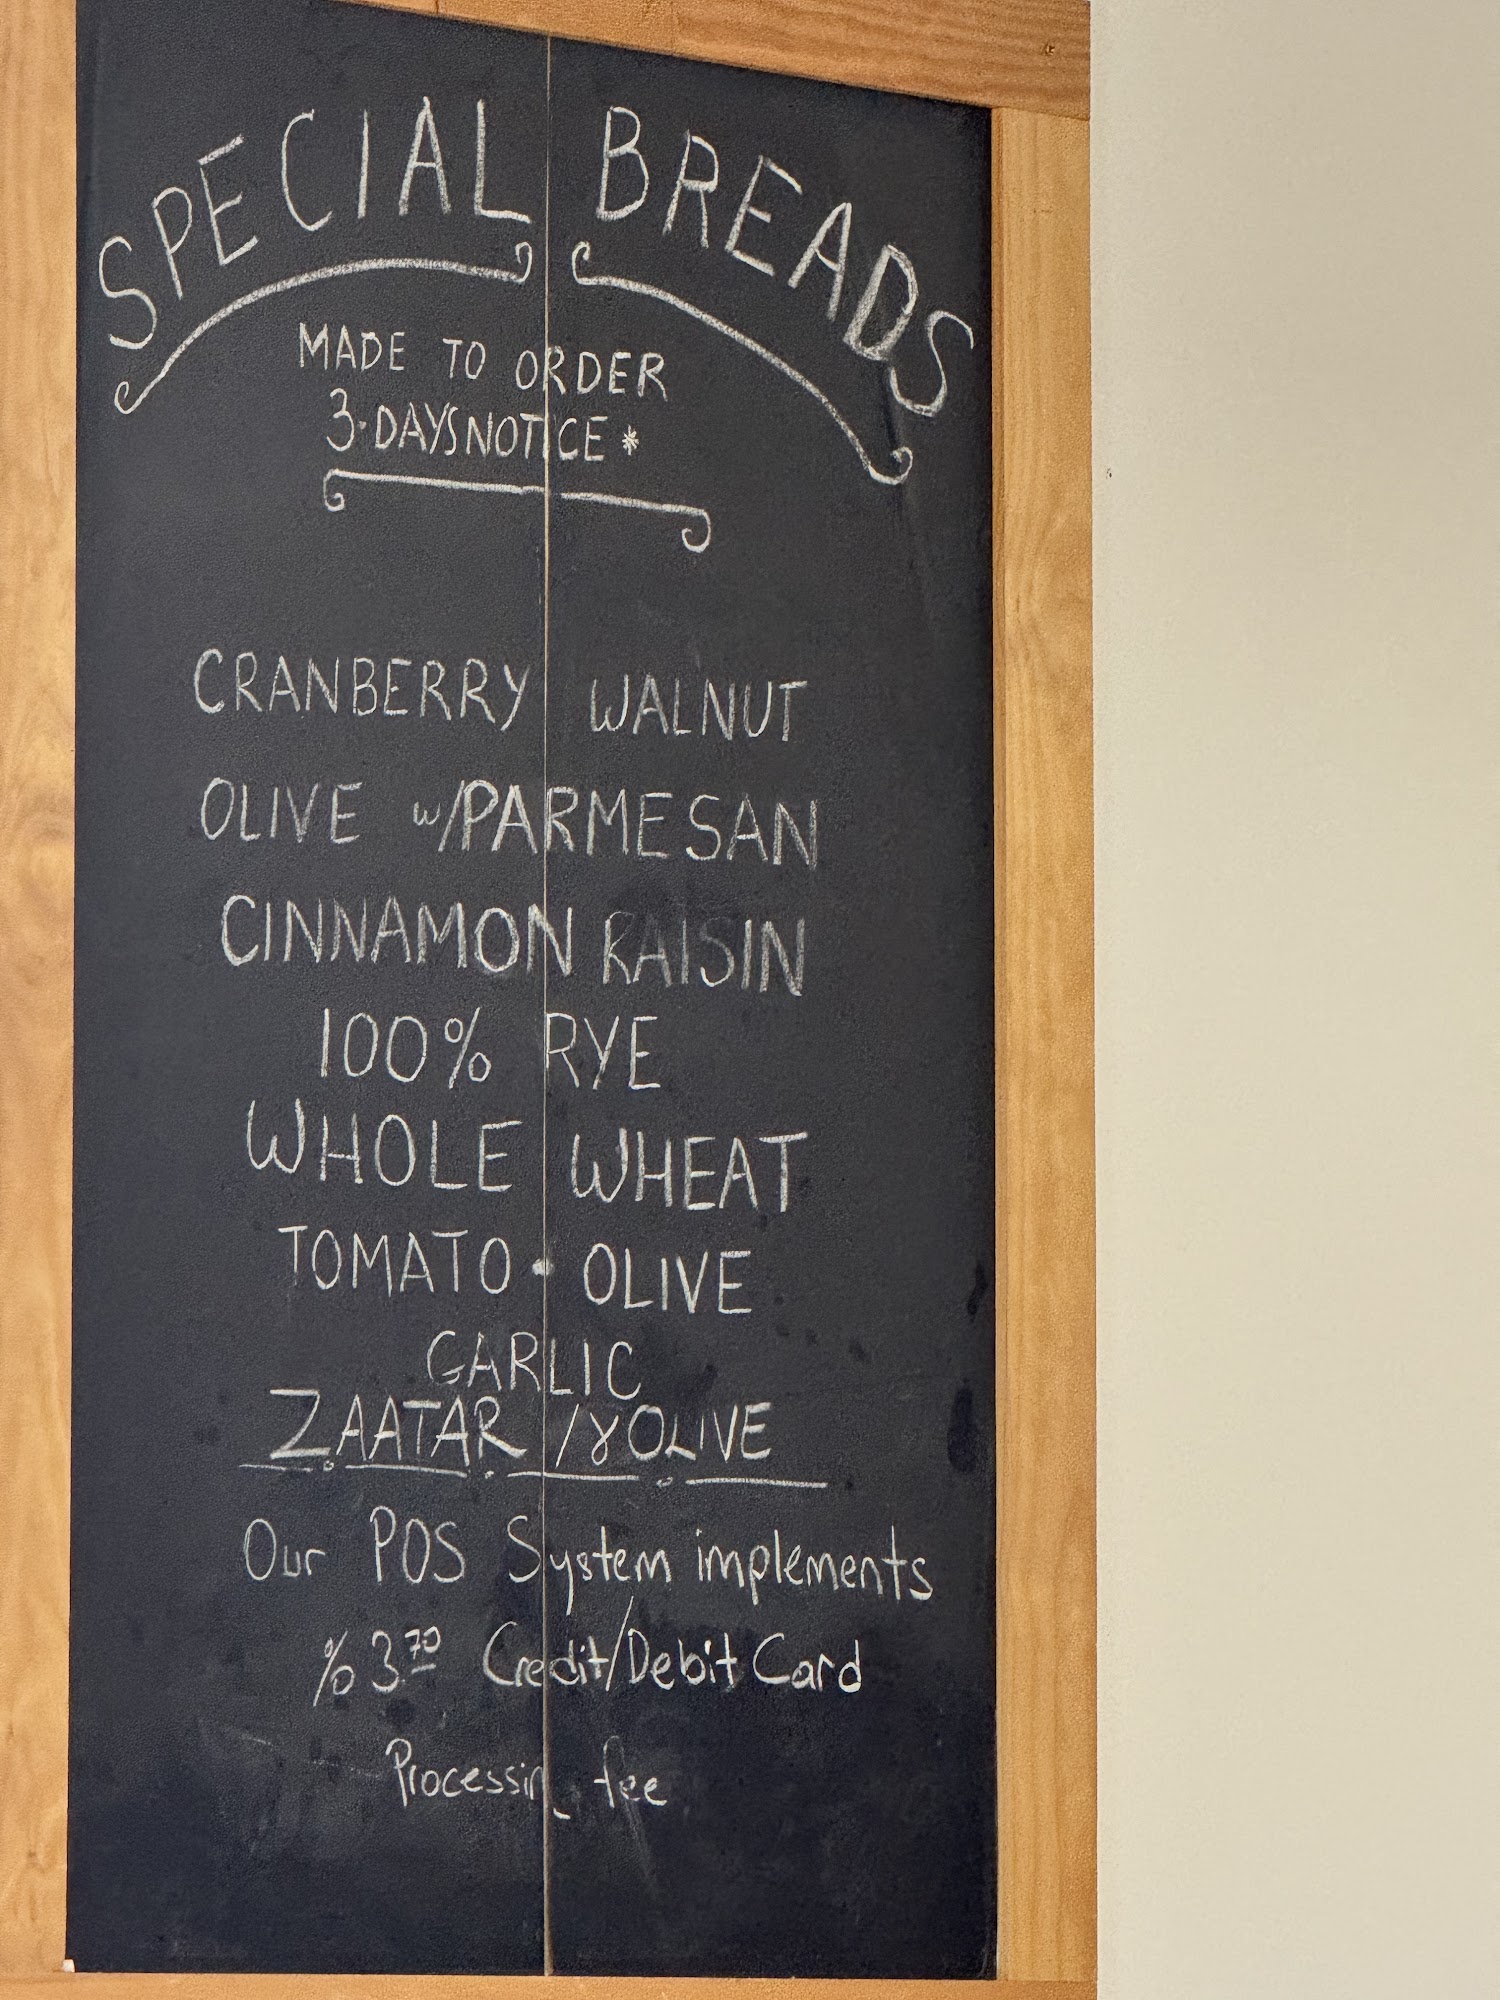 SPECIAL BREADS
MADE TO ORDER
3·DAYS NOTICE *
CRANBERRY WALNUT
OLIVE w/PARMESAN
CINNAMON RAISIN
100% RYE
WHOLE WHEAT
TOMATO • OLIVE
GARLIC
ZAATAR / & OLIVE
Our POS System implements
% 3.70 Credit/Debit Card
Processing fee